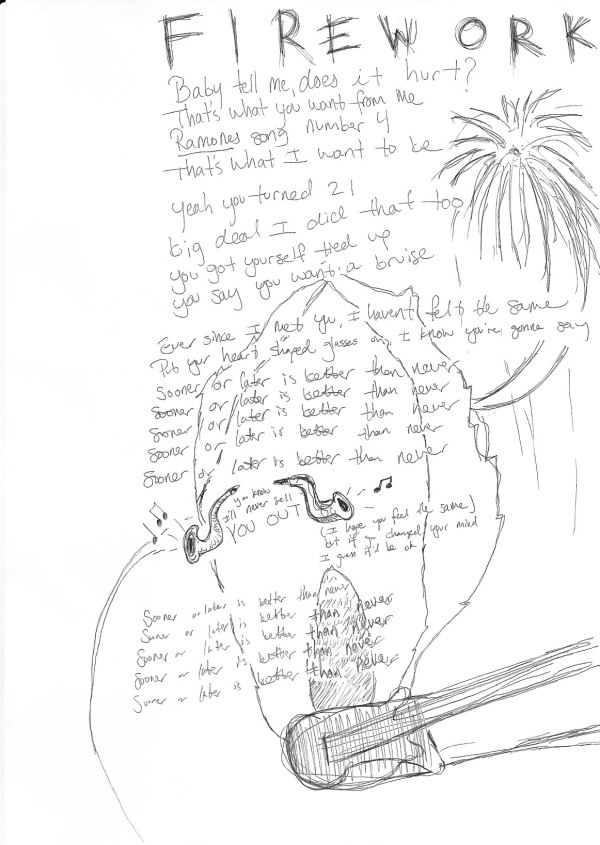 FIREWORK
Baby tell me, does it hurt?
That's what you want from me
Ramones song number 4
That's what I want to be
yeah you turned 21
big deal I did that too
you got yourself tied up
you say you want a bruise
Ever since I met yu, I havent felt the same
Put your heart shaped glasses on, I know you're gonna say
Sooner or later is better than never
Sooner or later is better than never
Sooner or later is better than never
Sooner or later is better than never
Sooner or later is better than never
you know
I'll never sell
YOU OUT
(I hope you feel the same)
but if you changed your mind
I guess it'll be ok
Sooner or later is better than never
Sooner or later is better than never
Sooner or later is better than never
Sooner or later is better than never
Sooner or later is better than never